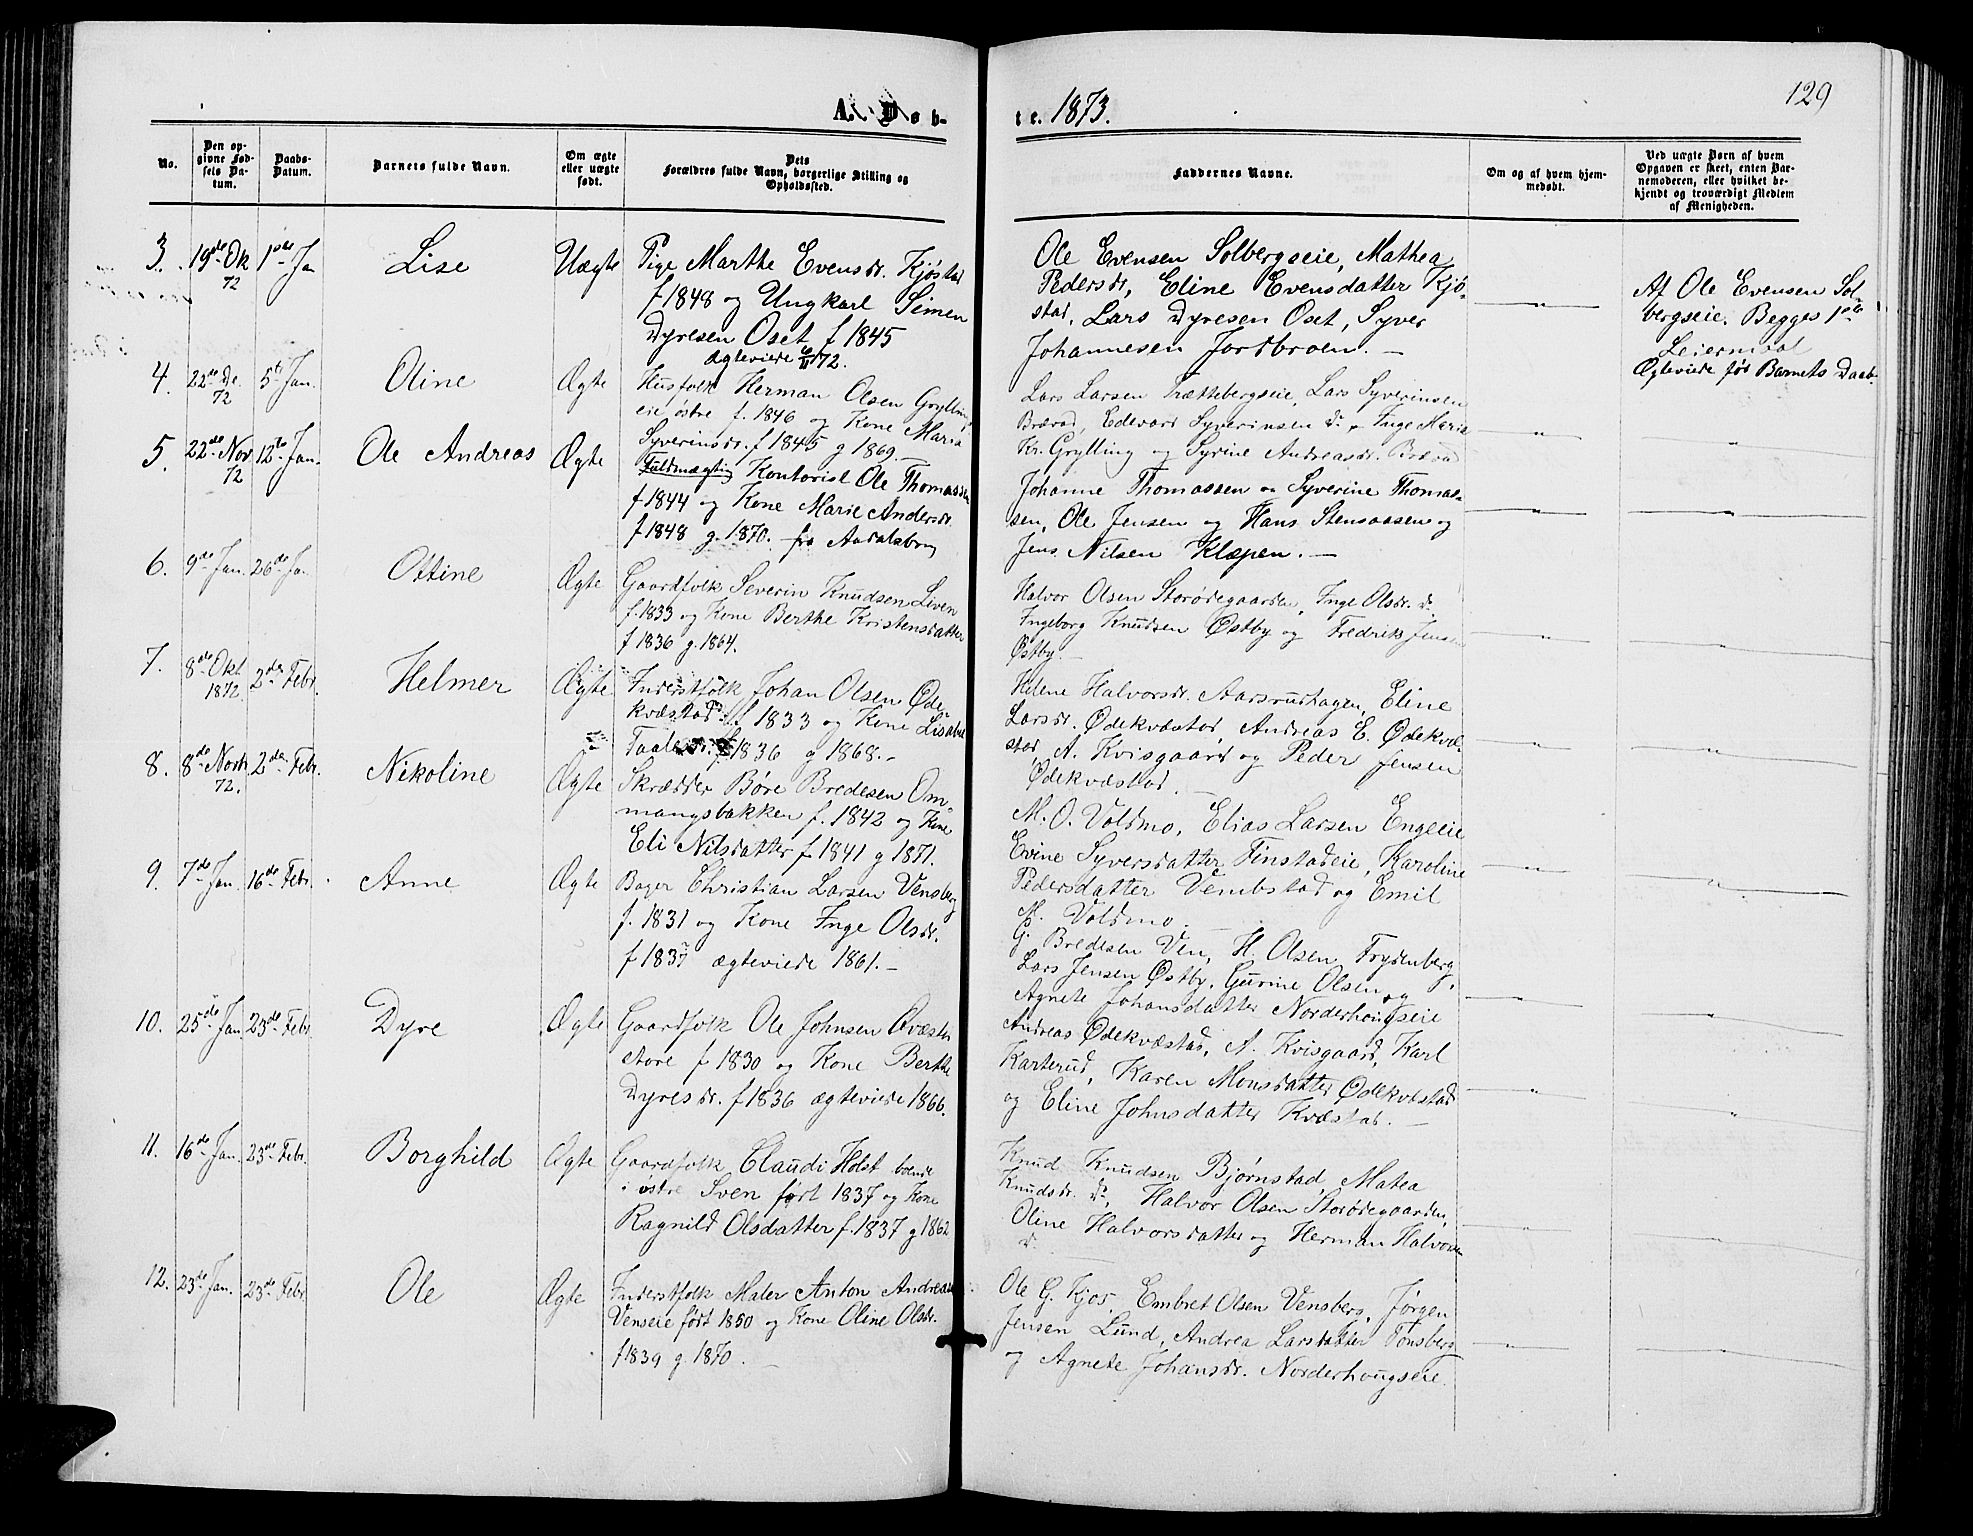 129
A. Døb-
te. 1873.
No.
Den op-
givne Fød-
sels Da-
tum.
Daabs-
Datum.
Barnets fulde Navn.
Om ægte
eller uægte
født.
Dets
Forældres fulde Navn, borgerlige Stilling og
Opholdssted.
Faddernes Navne.
Om og af hvem hjem-
medøbt.
Ved uægte Børn af hvem
Opgaven er skeet, enten Bar-
nemoderen, eller hvilket be-
kjendt og troværdigt Medlem
af Menigheden.
3. 19de Ok 72 1ste Ja Lise Uægte
Pige Marthe Evensdr. Kjøstad
f 1848 og Ungkarl Simen
Dyresen Oset f 1845
Ægteviede 72.
Ole Evensen Solbergseie, Mathea
Pedersdr, Eline Evensdatter Kjø-
stad, Lars Dyresen Oset, Syver
Johannesen Jordbroen. —
Af Ole Evensen Sol-
bergseie. Begges 1ste
Leiermaal
Ægteviede før Barnets Daab.
4. 22de De. 72 5te Jan. Oline Ægte
Husfolk Herman Olsen Grylling
eie østre f. 1846 og Kone Maria
Syverinsdr. f 1845 g 1869.
Lars Larsen Trættebergseie, Lars Syverinsen
Edevard Syverinsen do, Inge Maria
Kr. Grylling og Syrine Andreasdr.
5. 22de Nov 72 12te Jan. Ole Andreas Ægte
Fuldmægtig Kontorist Ole Thomassen
f 1844 og Kone Marie Andersdr.
f 1848 g. 1870. — fra
Johanne Thomassen og Syverine Thomas-
sen, Ole Jensen og Hans Stensaasen og
Jens Nilsen Klæpen. —
6. 9de Jan. 26de Ja. Ottine Ægte
Gaardfolk Severin Knudsen Liven
f. 1833 og Kone Berthe Kristensdatter
f 1836 g. 1864.
Halvor Olsen Storødegaarden, Inge Olsdr. do
Ingeborg Knudsen Østby og Fredrik Jensen
Østby. —
7. 8de Okt 1872. 2den Febr. Helmer Ægte
Inderstfolk Johan Olsen Øde-
kvæstad f 1833 og Kone Lisabet
f 1836 g 1868. —
Helene Halvorsdr. Aarsrudhagen, Eline
Larsdr. Ødekvæstad, Andreas E. Ødekvæ-
stad, A. Kvisgaard og Peder Jensen
Ødekvæstad. —
8. 8de Novb 72. 2den Febr. Nikoline Ægte
Skrædder Børe Bredesen Om-
mangsbakken f. 1842 og Kone
Eli Nilsdatter f 1841 g 1871.
M. O. Voldmo, Elias Larsen Engeeie
Evine Syversdatter Finstadeie, Karoline
Pedersdatter Vembstad og Emil
M. Voldmo. —
9. 7de Jan. 16de Febr. Anne Ægte
Bager Christian Larsen Vensberg
f. 1831 og Kone Inge Olsdr.
f 1837 ægteviede 1861. —
G. Bredesen Ven, H. Olsen Frydenberg,
Lars Jensen Østby, Gurine Olsen og
Agnete Johansdatter Norderhougseie
10. 25de Jan 23de Febr Dyre Ægte
Gaardfolk Ole Johnsen Qvæstad
store f 1830 og Kone Berthe
Dyresdr. f 1836 ægteviede 1866.
Andreas Ødekvæstad, A. Kvisgaard, Karl
Karterud, Karen Monsdatter Ødekvæstad
og Eline Johnsdatter Kvæstad. —
11. 16de Jan. 23de Febr. Borghild Ægte
Gaardfolk Claudi Holst boende
i østre Sven født 1837 og Kone
Ragnild Olsdatter f. 1837 g 1862
Knud Knudsen Bjørnstad, Matea
Knudsdr. do, Halvor Olsen Storødegaarden,
Oline Halvorsdatter og Herman Halvorsen
do.
12. 23de Jan. 23de Febr Ole Ægte
Inderstfolk Maler Anton Andreasen
Venseie født 1850 og Kone Oline Olsdr.
f 1839 g. 1870. —
Ole G. Kjos, Embret Olsen Vensberg, Jørgen
Jensen Lund, Andrea Larsdatter Tonsberg
og Agnete Johansdr. Norderhougseie.